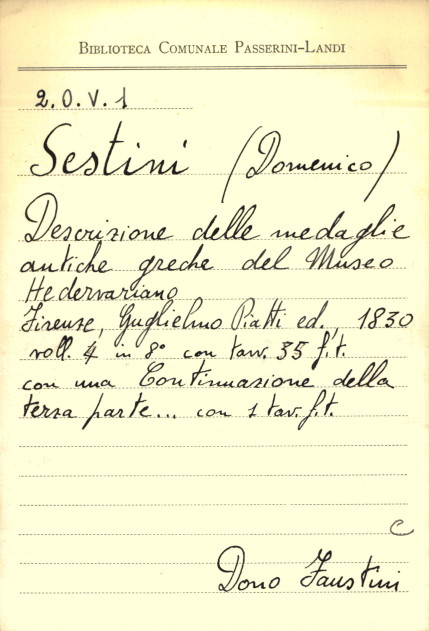 BIBLIOTECA COMUNALE PASSERINI-LANDI
2.O.V.1
Sestini (Domenico)
Descrizione delle medaglie
antiche greche del Museo
Hedervariano
Firenze, Guglielmo Piatti ed., 1830
voll. 4 in 8° con tavv. 35 f.t.
con una Continuazione della
terza parte... con 1 tav. f.t.
C
Dono Faustini